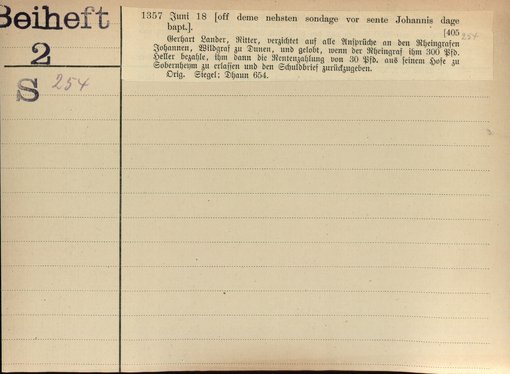 Beiheft
2
S 254
1357 Juni 18 [off deme nehsten sondage vor sente Johannis dage
bapt.].
[405 254
Gerhart Lander, Ritter, verzichtet auf alle Ansprüche an den Rheingrafen
Johannen, Wildgraf zu Dunen, und gelobt, wenn der Rheingraf ihm 300 Pfd.
Heller bezahle, ihm dann die Rentenzahlung von 30 Pfd. aus seinem Hofe zu
Sobernheym zu erlassen und den Schuldbrief zurückzugeben.
Orig. Siegel; Dhaun 654.